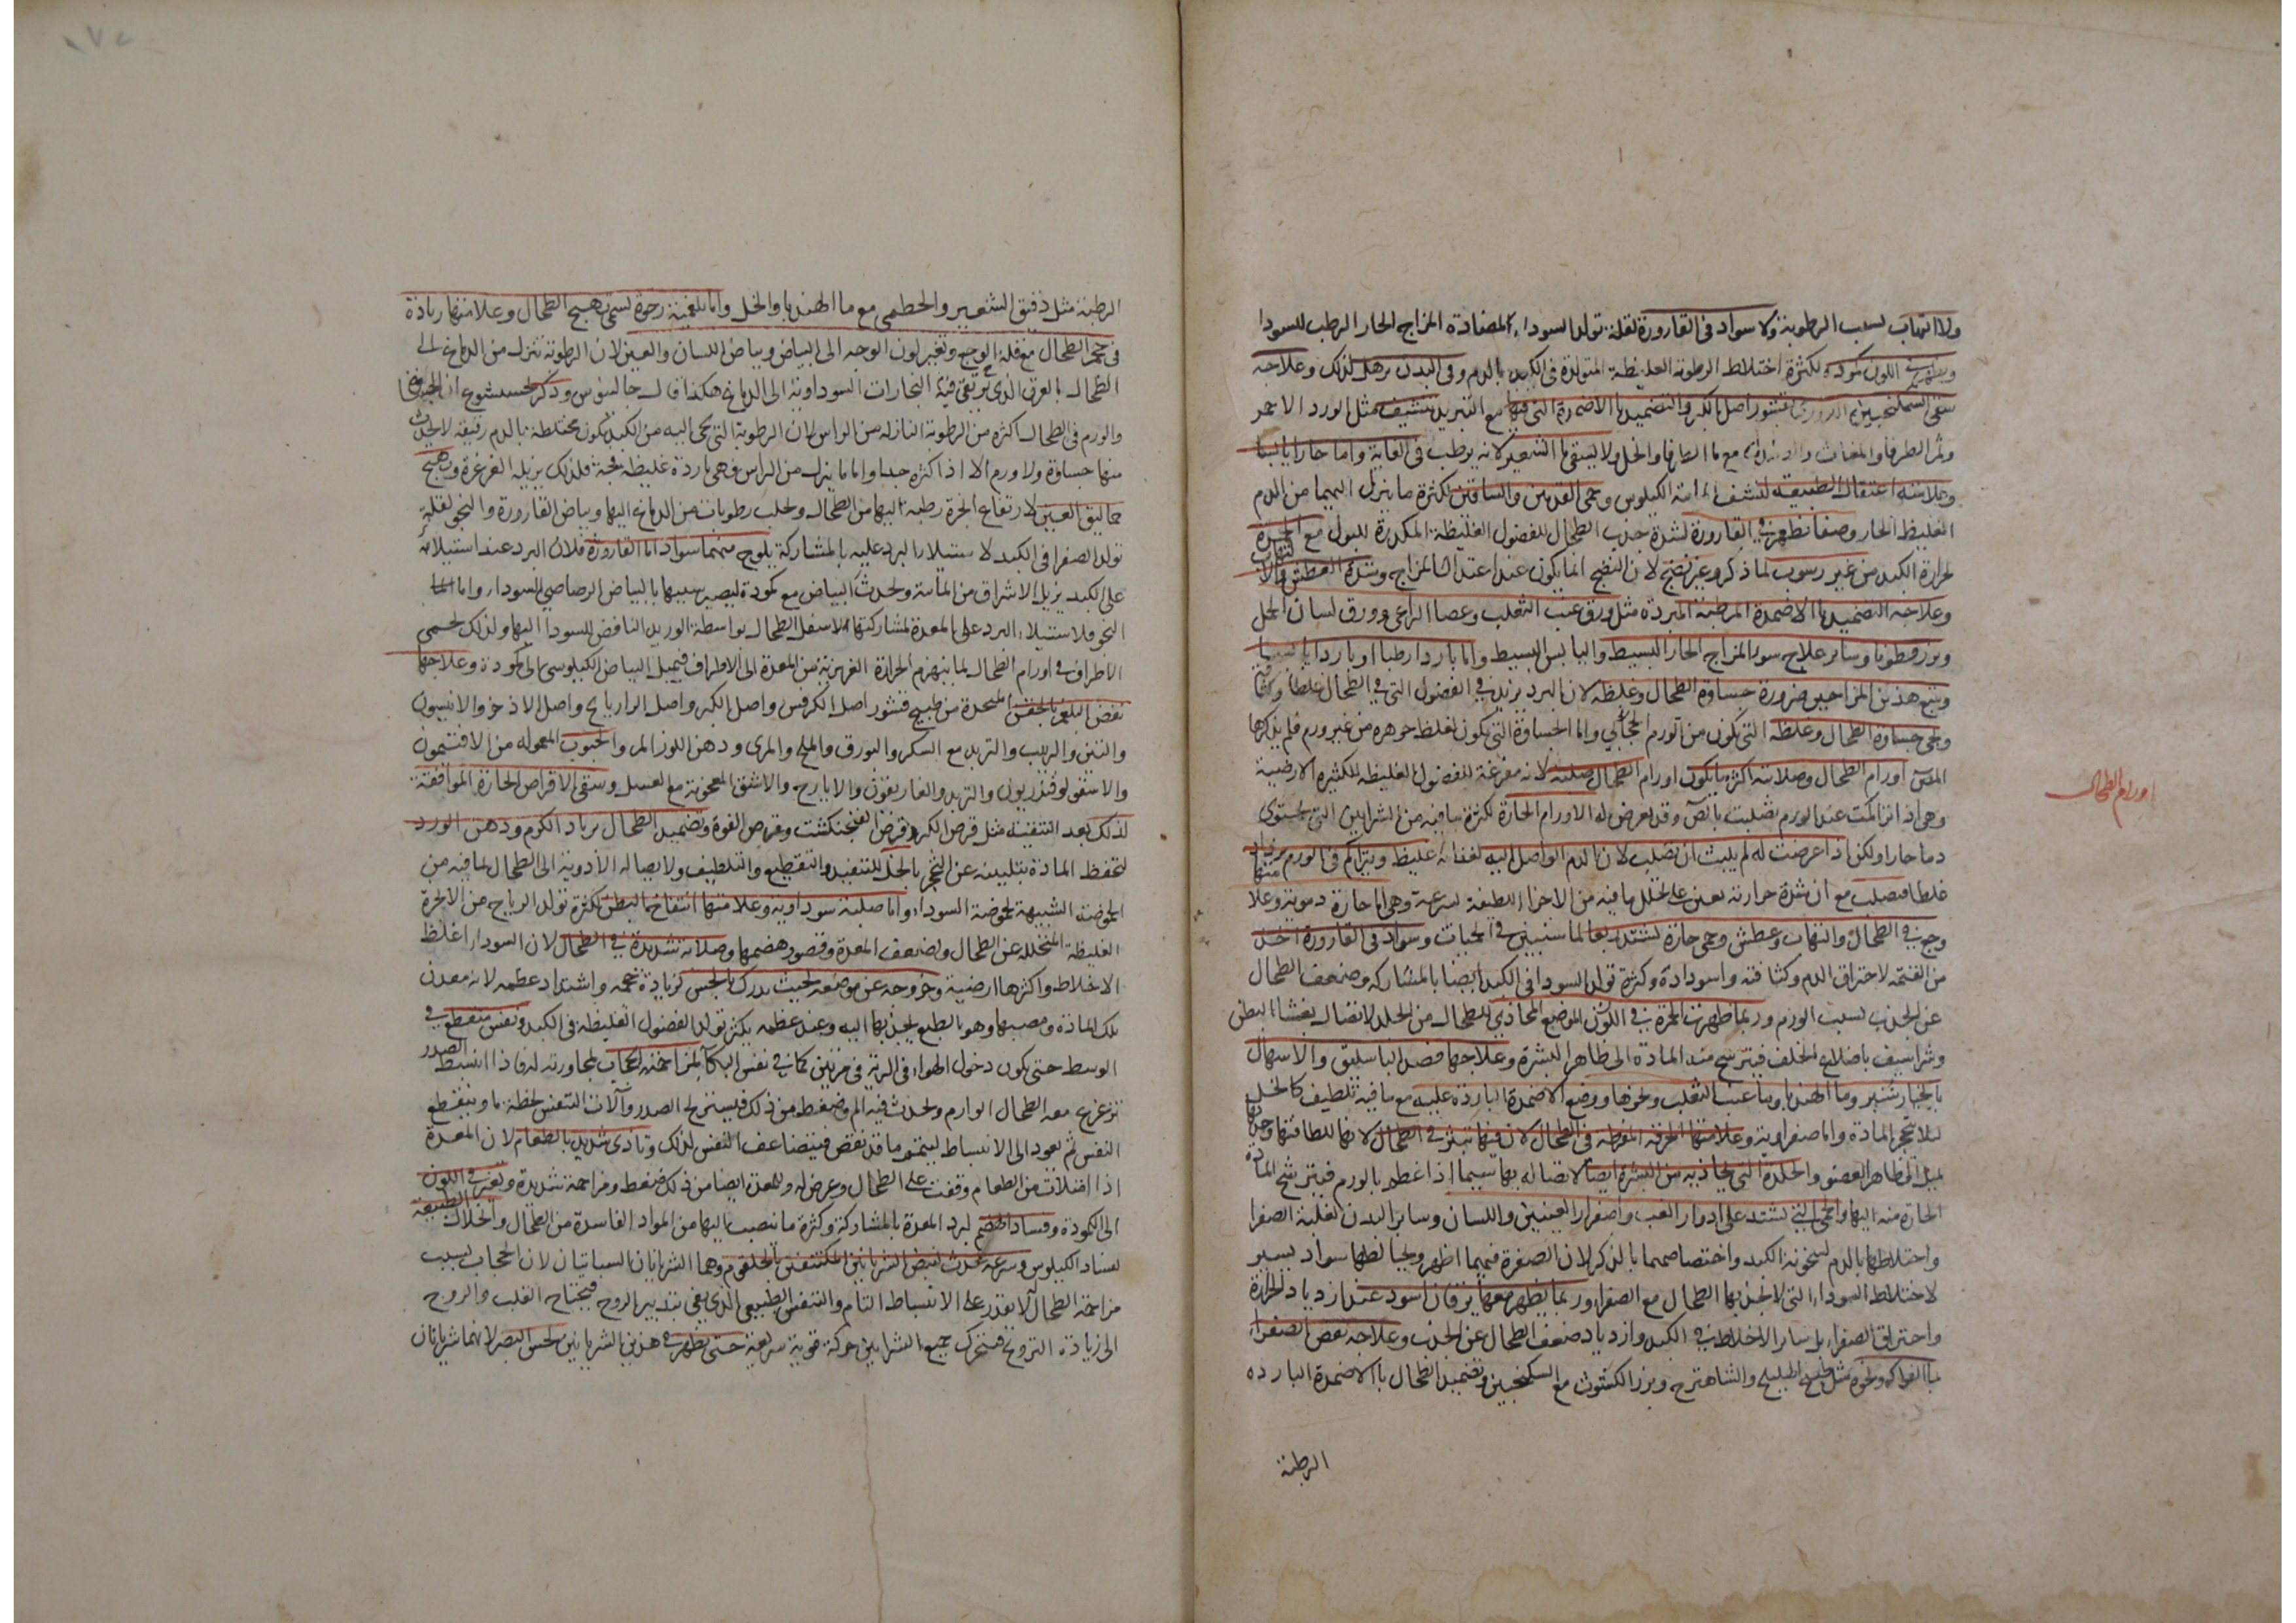 ولا التهاب لسبب الرطوبة ولا سواد فى القارورة لقلة تولد السوداء لمضادة المزاج الحار الرطب للسودا
ويظهر فى اللون كمودة لكثرة اختلاط الرطوبة الغليظة المتولدة فى الكبد بالدم وفى البدن ترهل لذلك وعلاجه
سقى السكنجبين البزورى بقشور اصل الكبر والتضميد بالاضمدة التى فيها مع التبريد تنشيف مثل الورد الاحمر
وثمر الطرفا والمغاث مع ما الطرفا والخل ولا يسقى ما الشعير لانه يرطب فى الغاية واما حارا يابسا
وعلامته اعتقال الطبيعة لنشف مائية الكيلوس وحمى القدمين والساقين لكثرة ما ينزل اليهما من الدم
الغليظ الحار وصفا يظهر فى القارورة لشدة جذب الطحال للفضول الغليظة المكدرة للبول مع الحمرة
لحرارة الكبد من غير رسوب لما ذكر وغير نضج لان النضج انما يكون عند اعتدال المزاج وشدة العطش والالتهاب
وعلاجه التضميد بالاضمدة المرطبة المبردة مثل ورق عنب الثعلب وعصا الراعى وورق لسان الحمل
وبزر قطونا وساير علاج سو المزاج الحار البسيط واليابس البسيط واما باردا رطبا او باردا يابسا
ويتبع هذين المزاجين ضرورة جساوة الطحال وغلظه لان البرد يزيد فى الفضول التى فى الطحال غلظا وكثافة
ويجى جساوة الطحال وغلظه التى تكون من الورم واما الجساوة التى تكون لغلظ جوهره من غير ورم فلم يذكرها
المص اورام الطحال وصلابته اكثر ما يكون اورام الطحال صلبة لانه مفرغة للفضول الغليظة الكثيرة الارضية
وهى اذا تراكمت عند الورم تصلبت بالص وقد يعرض له الاورام الحارة لكثرة ما فيه من الشرايين التى تحتوى
دما حارا ولكن اذا عرضت له لم يلبث ان تصلب لان الدم الواصل اليه لغذائه غليظ ويتراكم فى الورم يزداد
غلظا فيصلب مع ان شدة حرارته تعين على تحلل ما فيه من الاجزا اللطيفة بسرعة وهى اما حارة دموية وعلامتها
وجع فى الطحال والتهاب وعطش وحمى حارة تشتد ربعا لما سنبين فى الحميات وسواد فى القارورة اخذ
من القتمة لاحتراق الدم وكثافته واسوداده وكثرة تولد السودا فى الكبد ايضا بالمشاركة وضعف الطحال
عن الجذب بسبب الورم وربما ظهرت الحمرة فى اللون الموضع المحاذى للطحال من الجلد لاتصال بغشا البطن
وشراسيف باضلاع الخلف فيترشح منه المادة الى ظاهر البشرة وعلاجها فصد الباسليق والاسهال
بالخيار شنبر وما الهندبا وما عنب الثعلب ونحوها ووضع الاضمدة الباردة عليه مع ما فيه تلطيف كالخل
ليلا تتحجر المادة واما صفراوية وعلامتها الحرقة المفرطة فى الطحال لانها للطافتها وحدتها
تميل الى ظاهر العضو والجلدة التى تحاذيه من البشرة ايضا لاتصاله بها سيما اذا عظم بالورم فيترشح المادة
الحارة منه اليها والحمى التى تشتد على ادوار الغب واصفرار العينين واللسان وساير البدن لغلبة الصفرا
واختلاطها بالدم لسخونة الكبد واختصاصهما بالذكر لان الصفرة فيهما اظهر ويخالطها سواد يسير
لاختلاط السوداء التى لا يجذبها الطحال مع الصفراء وربما يظهر معها يرقان اسود عند ازدياد الحرارة
واحتراق الصفراء بل ساير الاخلاط فى الكبد وازدياد ضعف الطحال عن الجذب وعلاجه نفض الصفراء
بما الفواكه ونحوه مثل طبيخ الهليلج والشاهترج وبزر الكشوث مع السكنجبين وتضميد الطحال بالاضمدة الباردة
الرطبة
اورام الطحال
الرطبة مثل دقيق الشعير والخطمى مع ما الهندبا والخل واما بلغمية رخوة تسمى تهبج الطحال وعلامتها زيادة
فى حجم الطحال مع قلة الوجع وتغير لون الوجه الى البياض وبياض اللسان والعين لان الرطوبة تنزل من الدماغ الى
الطحال بالعرق الذى يرتقى فيه البخارات السوداوية الى الدماغ هكذا قال جالينوس وذكر
والورم فى الطحال اكثره من الرطوبة النازلة من الراس لان الرطوبة التى تجى اليه من الكبد تكون مختلطة بالدم رقيقة لا يحدث
منها جساوة ولا ورم الا اذا كثرة جدا واما ما ينزل من الراس فهى باردة غليظة فجة فلذلك يزيله الغرغرة وتهبج
جماليق العين لارتفاع ابخرة رطبة اليها من الطحال وتحلب رطوبات من الدماغ اليها وبياض القارورة والنجو لقلة
تولد الصفرا فى الكبد لاستيلا البرد عليه بالمشاركة يلوح منهما سواد اما القارورة فلان البرد عند استيلائه
على الكبد يزيل الاشراق من المائية ويحدث البياض مع كمودة ليصير سببها بالبياض الرصاصى للسودا واما
النجو فلاستيلاء البرد على المعدة لمشاركتها لاسفل الطحال بواسطة الوريد النافض للسودا اليها ولذلك تحمى
الاطراف فى اورام الطحال لما ينهزم الحرارة الغريزية من المعدة الى الاطراف فيميل البياض الكيلوسى الى كمودة وعلاجها
نفض البلغم بالحقن المتخذة من طبيخ قشور اصل الكرفس واصل الكبر واصل الرازيانج واصل الاذخر والانيسون
والتين والزبيب والتربد مع السكر والبورق والملح والمرى ودهن اللوز المر والحبوب المعمولة من الافتيمون
والاسقولوقندريون والتربد والغاريقون والايارج والاشق المعجونة مع العسل وسقى الاقراص الحارة الموافقة
لذلك بعد التنقية مثل قرص الكبر وقرص الفنجنكشت وقرص الفوة وتضميد الطحال برماد الكرم ودهن الورد
لتحفظ المادة بتليينه عن التحجر بالخل للتنفيذ والتقطيع والتلطيف ولايصاله الادوية الى الطحال لما فيه من
الحموضة الشبيهة بحموضة السوداء واما صلبة سوداوية وعلامتها انتفاخ البطن لكثرة تولد الرياح من الابخرة
الغليظة المتحللة عن الطحال ولضعف المعدة وقصور هضمها وصلابة شديدة فى الطحال لان السودا اغلظ
الاخلاط واكثرها ارضية وخروجه عن موضعه بحيث يدرك بالجس لزيادة حجمه واشتداد عظمه لانه معدن
تلك المادة ومصبها وهو بالطبع يجذبها اليه وعند عظمه يكثر تولد الفضول الغليظة فى الكبد ونفس متقطع فى
الوسط حتى يكون دخول الهواء فى الرئة فى مرتين كما فى نفس البكا لمزاحمته الحجاب لمجاورته له فاذا انبسط الصدر
تزعزع معه الطحال الوارم ويحدث فيه الم وضغط من ذلك فيستريح الصدر وآلات التنفس لحظة ما وينقطع
النفس ثم يعود الى الانبساط ليتم ما قد نقص فيتضاعف التنفس لذلك وتاذى شديد بالطعام لان المعدة
اذا امتلات من الطعام وقفت على الطحال وعرض له وللمعدة ايضا من ذلك ضغط ومزاحمة شديدة وتغير فى اللون
الى الكمودة وفساد الهضم لبرد المعدة بالمشاركة وكثرة ما ينصب اليها من المواد الفاسدة من الطحال وانحلال الطبيعة
لفساد الكيلوس وسرعة تحدث لنبض الشريانين المكتنفين بالحلقوم وهما الشريانان السباتيان لان الحجاب بسبب
مزاحمة الطحال لا يقدر على الانبساط التام والتنفس الطبيعى الذى يفى بتدبير الروح فيحتاج القلب والروح
الى زيادة الترويح فتتحرك جميع الشرايين حركة قوية سريعة حتى يظهر فى هذين الشريانين لحس البصر لانهما شريانان